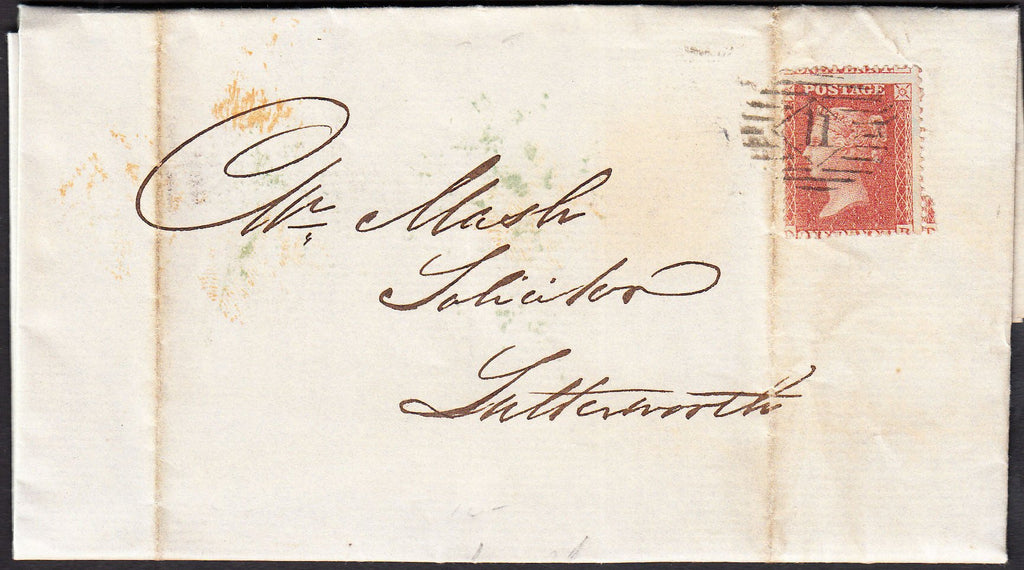 POSTAGE
11
Mr. Mash
Solicitor
Lutterworth